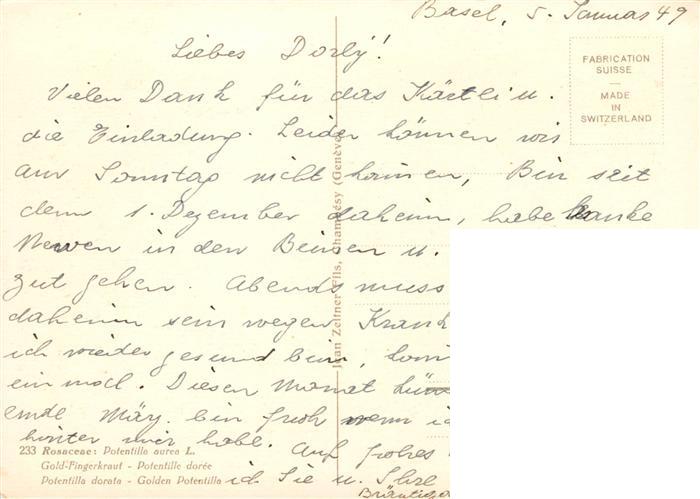 Basel, 5. Januar 49
Liebes Dorly!
FABRICATION
SUISSE
MADE
IN
SWITZERLAND
Vielen Dank für das Kärtli u.
die Einladung. Leider können wir
am Sonntag nicht kommen, Bin seit
dem 1. Dezember daheim, habe kranke
Nerven in den Beinen u.
gut gehen. Abends muss
daheim sein wegen Krank
ich wieder gesund bin,
einmal. Diesen Monat
ende März. bin froh wenn ic
hinter mir habe. Auf frohes
ich Sie u. Ihre
Jean Zeltner Fils, Chambésy (Genève)
233 Rosaceae: Potentilla aurea L.
Gold-Fingerkraut - Potentille dorée
Potentilla dorata - Golden Potentilla